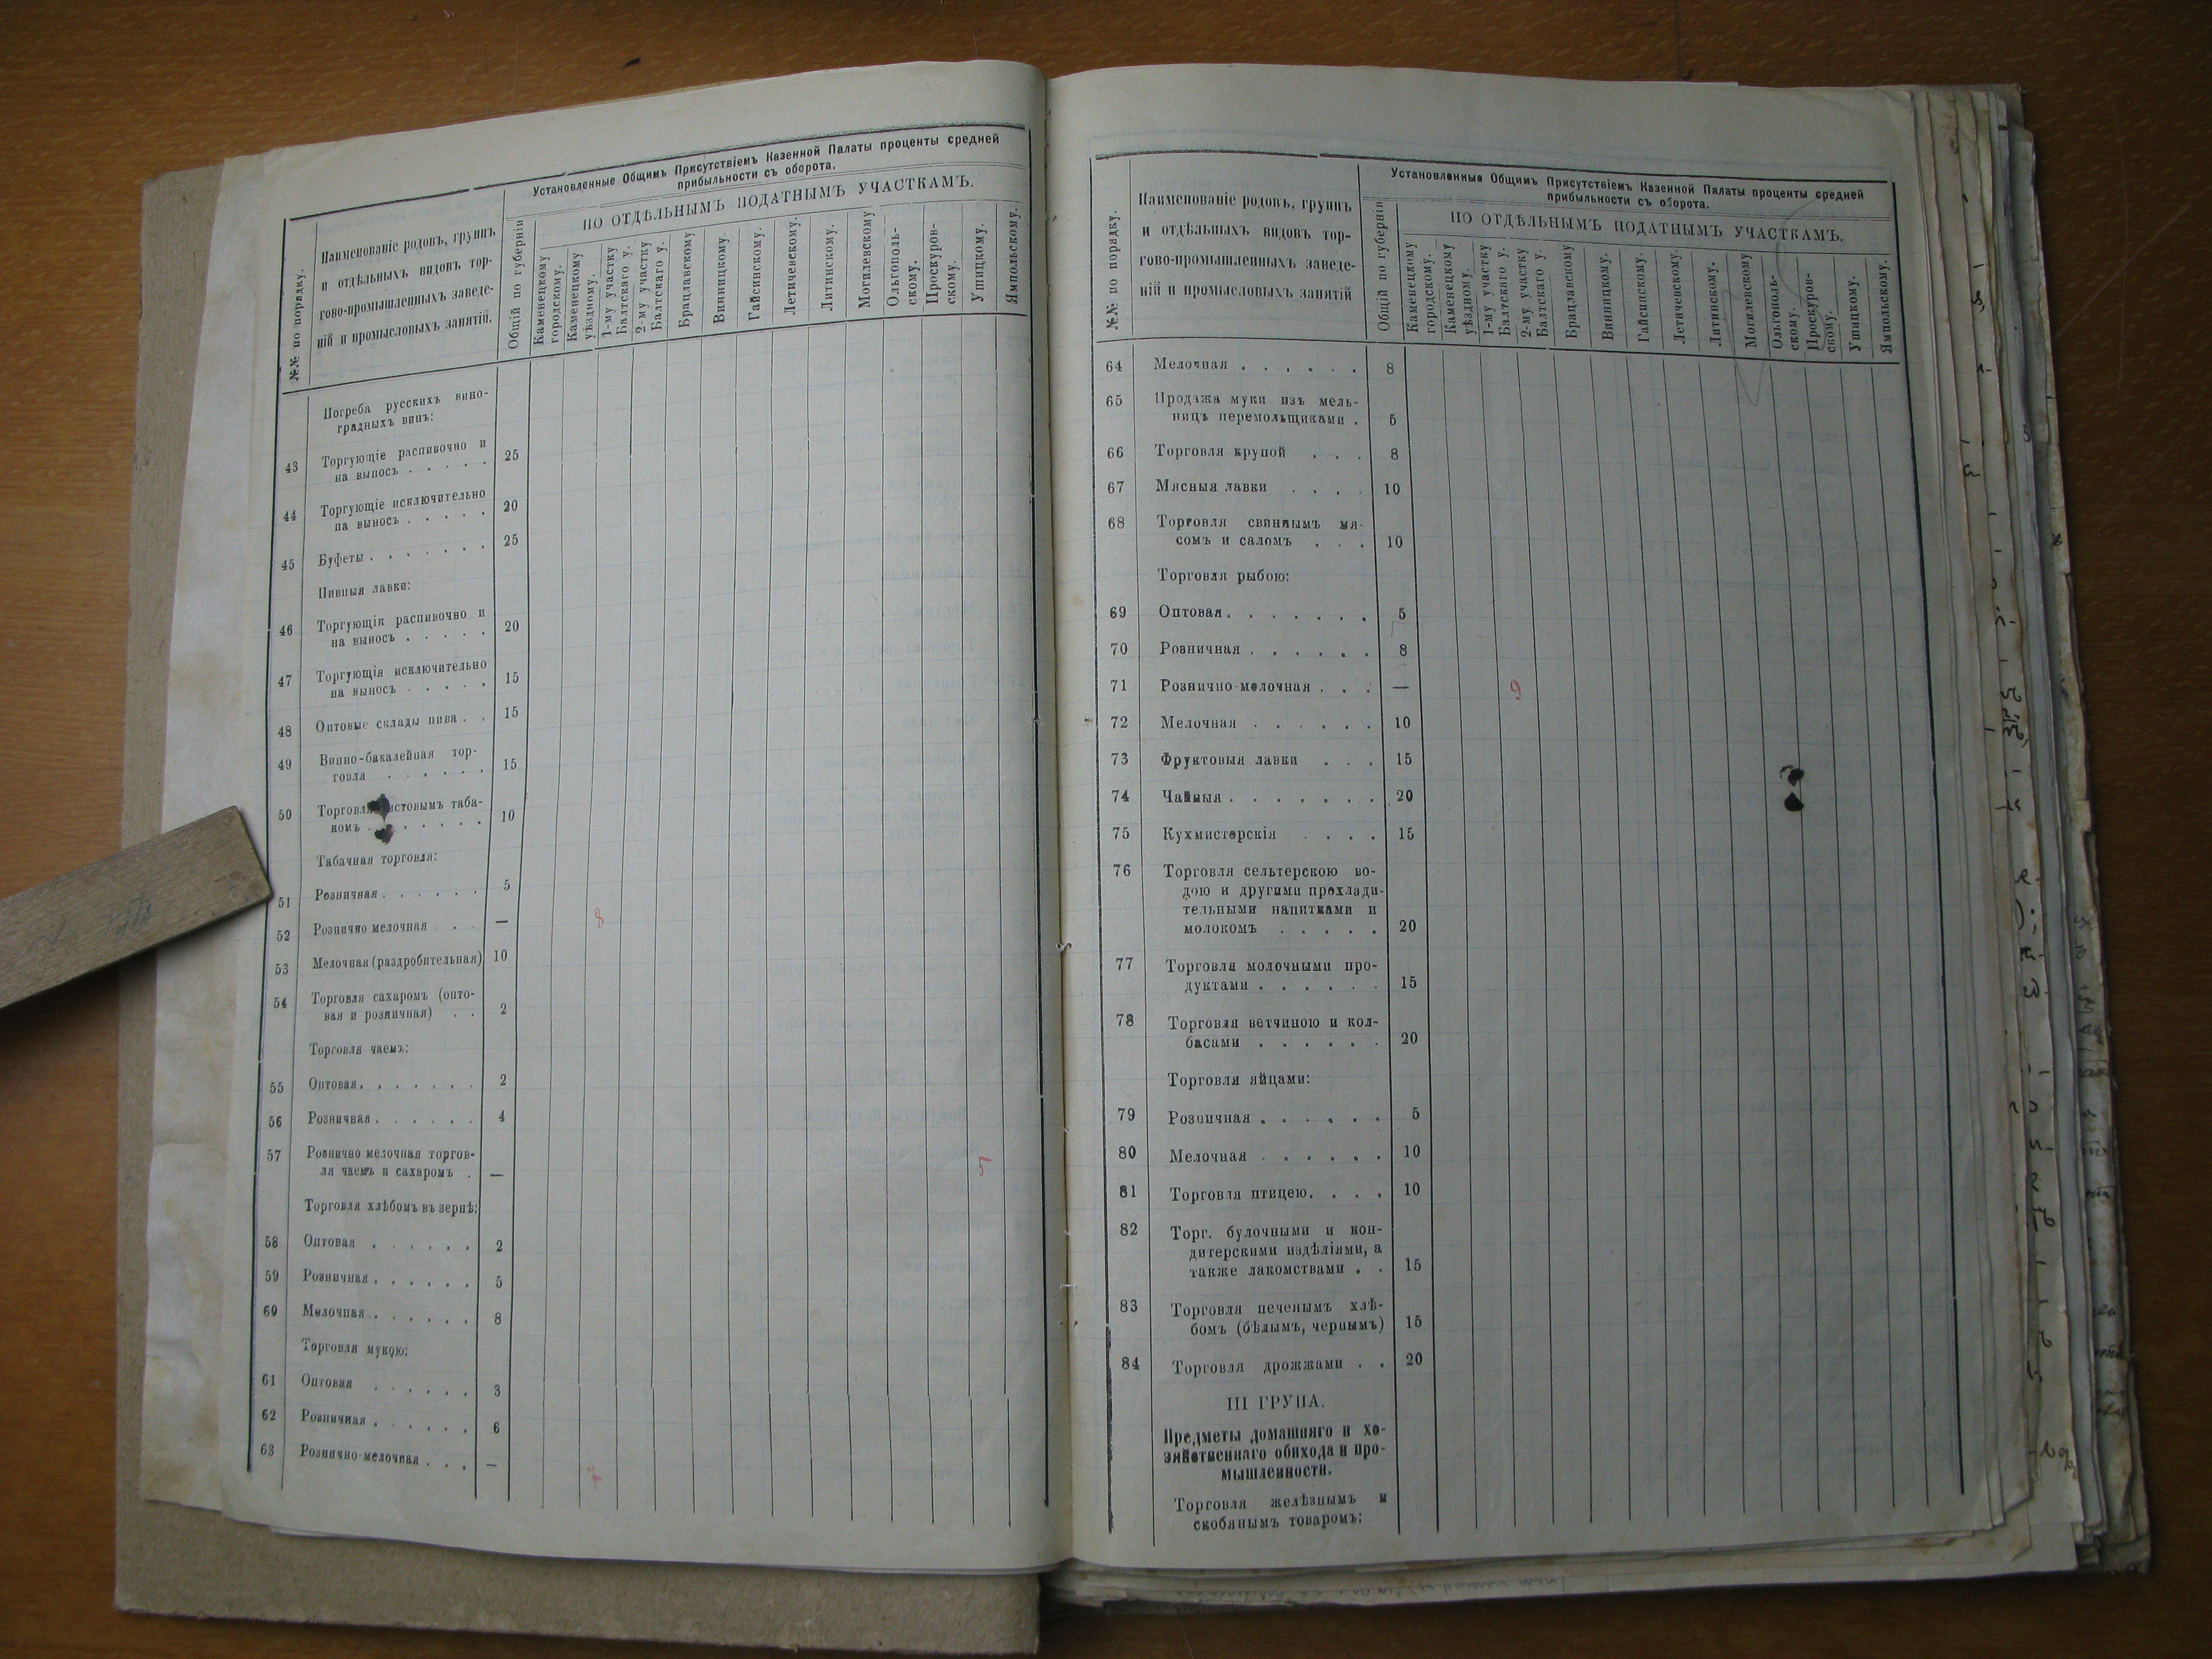 Установленные Общимъ Присутствіемъ Казенной Палаты проценты средней
прибыльности съ оборота.
ПО ОТДѢЛЬНЫМЪ ПОДАТНЫМЪ УЧАСТКАМЪ.
№№ по порядку.
Наименованіе родовъ, групъ
и отдѣльныхъ видовъ тор-
гово-промышленныхъ заведе-
ній и промысловыхъ занятій.
Общій по губерніи
Каменецкому
городскому.
Каменецкому
уѣздному.
1-му участку
Балтскаго у.
2-му участку
Балтскаго у.
Брацлавскому
Винницкому.
Гайсинскому.
Летичевскому.
Литинскому.
Могилевскому
Ольгополь-
скому.
Проскуров-
скому.
Ушицкому.
Ямпольскому.
Погреба русскихъ вино-
градныхъ винъ:
43 Торгующіе распивочно и
на выносъ . . . . . 25
44 Торгующіе исключительно
на выносъ . . . . . 20
45 Буфеты . . . . . . . 25
Пивныя лавки:
46 Торгующія распивочно и
на выносъ . . . . . 20
47 Торгующія исключительно
на выносъ . . . . . 15
48 Оптовые склады пива . . 15
49 Винно-бакалейная тор-
говля . . . . . . 15
50 Торговля листовымъ таба-
комъ . . . . . . . 10
Табачная торговля:
51 Розничная . . . . . . 5
52 Рознично мелочная . . . — 8
53 Мелочная (раздробительная) 10
54 Торговля сахаромъ (опто-
вая и розничная) . . 2
Торговля чаемъ:
55 Оптовая . . . . . . . 2
56 Розничная . . . . . . 4
57 Рознично мелочная торгов-
ля чаемъ и сахаромъ . — 5
Торговля хлѣбомъ въ зернѣ:
58 Оптовая . . . . . . 2
59 Розничная . . . . . . 5
60 Мелочная . . . . . . 8
Торговля мукою:
61 Оптовая . . . . . . 3
62 Розничная . . . . . . 6
63 Рознично-мелочная . . . — 7
Установленные Общимъ Присутствіемъ Казенной Палаты проценты средней
прибыльности съ оборота.
ПО ОТДѢЛЬНЫМЪ ПОДАТНЫМЪ УЧАСТКАМЪ.
№№ по порядку.
Наименованіе родовъ, групъ
и отдѣльныхъ видовъ тор-
гово-промышленныхъ заведе-
ній и промысловыхъ занятій
Общій по губерніи
Каменецкому
городскому.
Каменецкому
уѣздному.
1-му участку
Балтскаго у.
2-му участку
Балтскаго у.
Брацлавскому
Винницкому.
Гайсинскому.
Летичевскому.
Литинскому.
Могилевскому
Ольгополь-
скому.
Проскуров-
скому.
Ушицкому.
Ямпольскому.
64 Мелочная . . . . . . 8
65 Продажа муки изъ мель-
ницъ перемольщиками . 5
66 Торговля крупой . . . 8
67 Мясныя лавки . . . . 10
68 Торговля свинымъ мя-
сомъ и саломъ . . . 10
Торговля рыбою:
69 Оптовая . . . . . . . 5
70 Розничная . . . . . . 8
71 Рознично-мелочная . . . — 9
72 Мелочная . . . . . . 10
73 Фруктовыя лавки . . . 15
74 Чайныя . . . . . . . 20
75 Кухмистерскія . . . . 15
76 Торговля сельтерскою во-
дою и другими прохлади-
тельными напитками и
молокомъ . . . . . 20
77 Торговля молочными про-
дуктами . . . . . . 15
78 Торговля ветчиною и кол-
басами . . . . . . 20
Торговля яйцами:
79 Розничная . . . . . . 5
80 Мелочная . . . . . . 10
81 Торговля птицею. . . . 10
82 Торг. булочными и кон-
дитерскими издѣліями, а
также лакомствами . . 15
83 Торговля печенымъ хлѣ-
бомъ (бѣлымъ, чернымъ) 15
84 Торговля дрожжами . . 20
III ГРУПА.
Предметы домашняго и хо-
зяйственнаго обихода и про-
мышленности.
Торговля желѣзнымъ и
скобянымъ товаромъ: